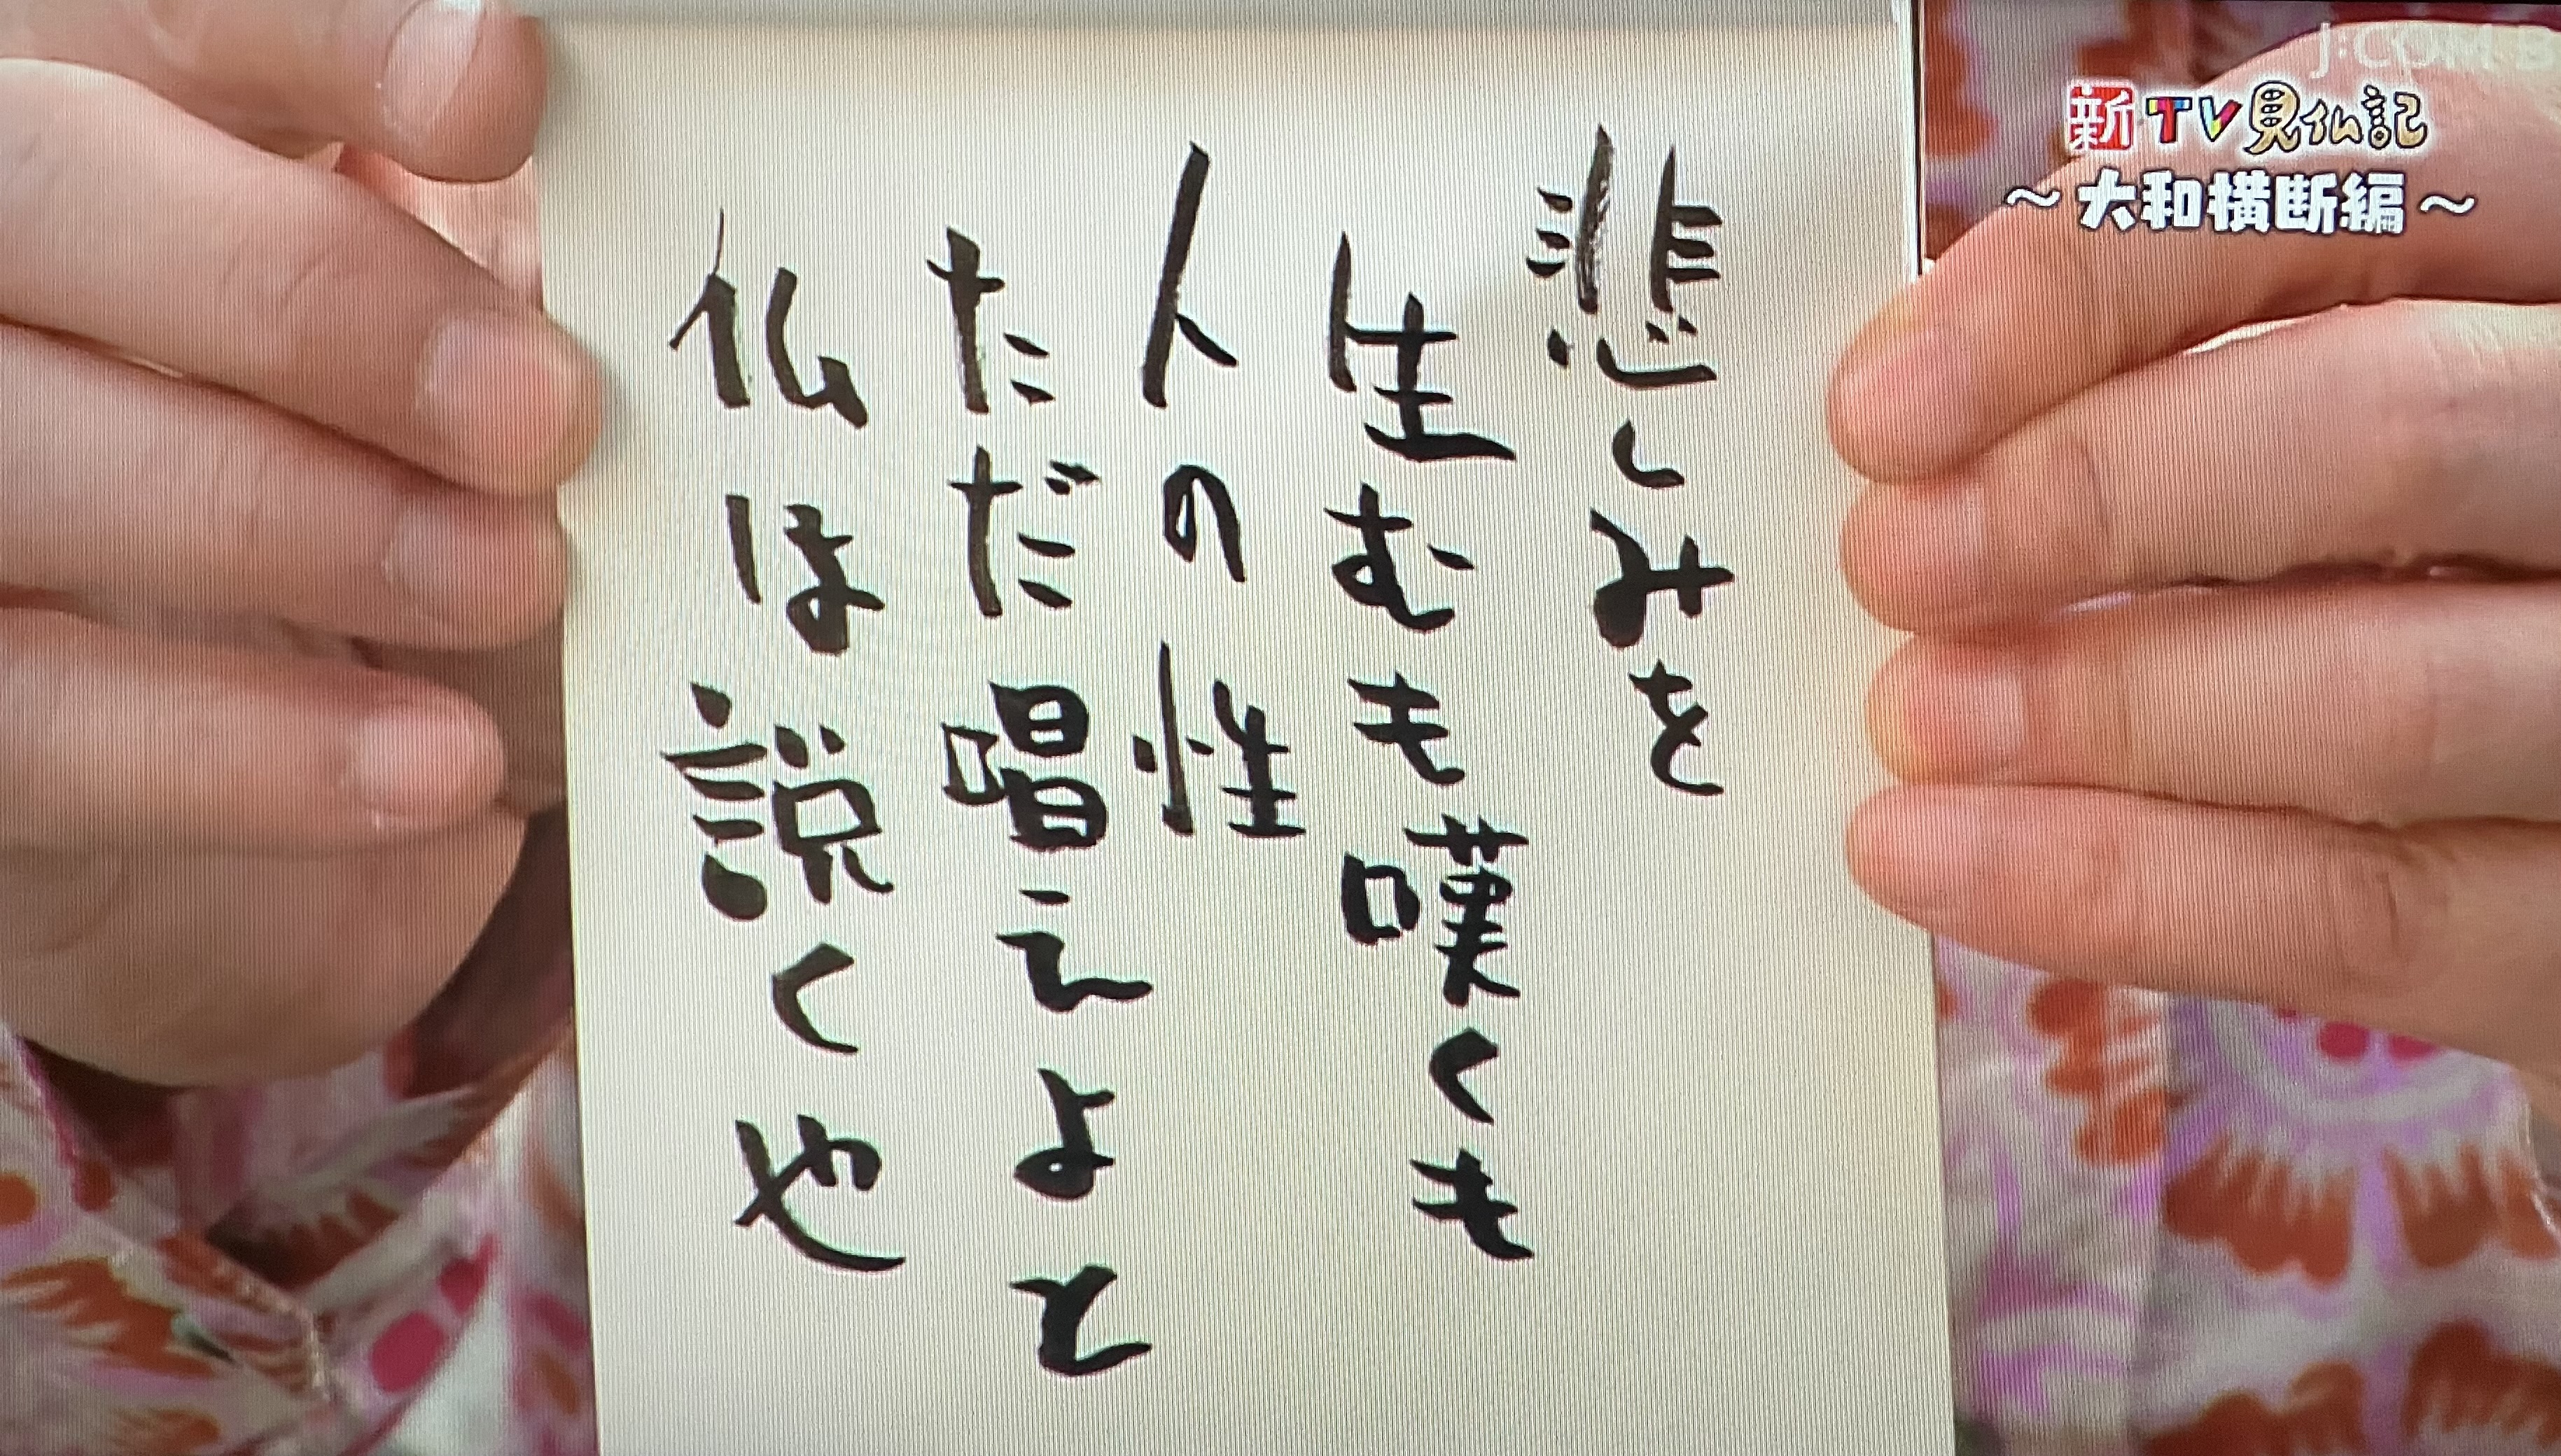 悲しみを
生むも嘆くも
人の性
ただ唱えよと
仏は説くや
J:COM B
新TV見仏記
～大和横断編～